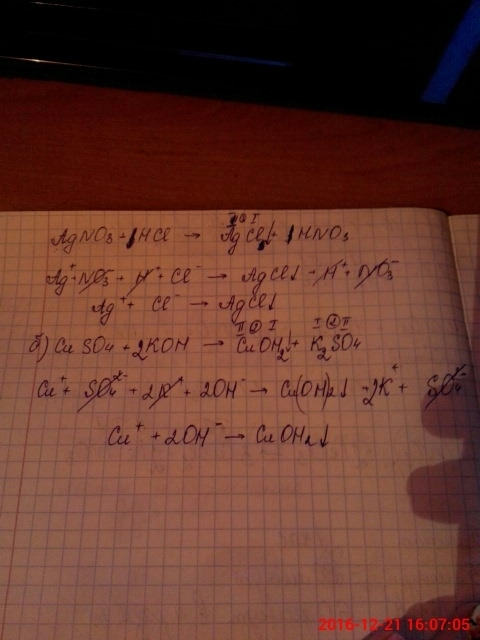 I ② I
AgNO₃ + 1HCl → AgCl↓ + 1HNO₃
Ag⁺ + NO₃⁻ + H⁺ + Cl⁻ → AgCl↓ + H⁺ + NO₃⁻
Ag⁺ + Cl⁻ → AgCl↓
II ② I I ② II
б) CuSO₄ + 2KOH → CuOH₂↓ + K₂SO₄
Cu⁺ + SO₄²⁻ + 2K⁺ + 2OH⁻ → Cu(OH)₂↓ + 2K⁺ + SO₄²⁻
Cu⁺ + 2OH⁻ → CuOH₂↓
2016-12-21 16:07:05